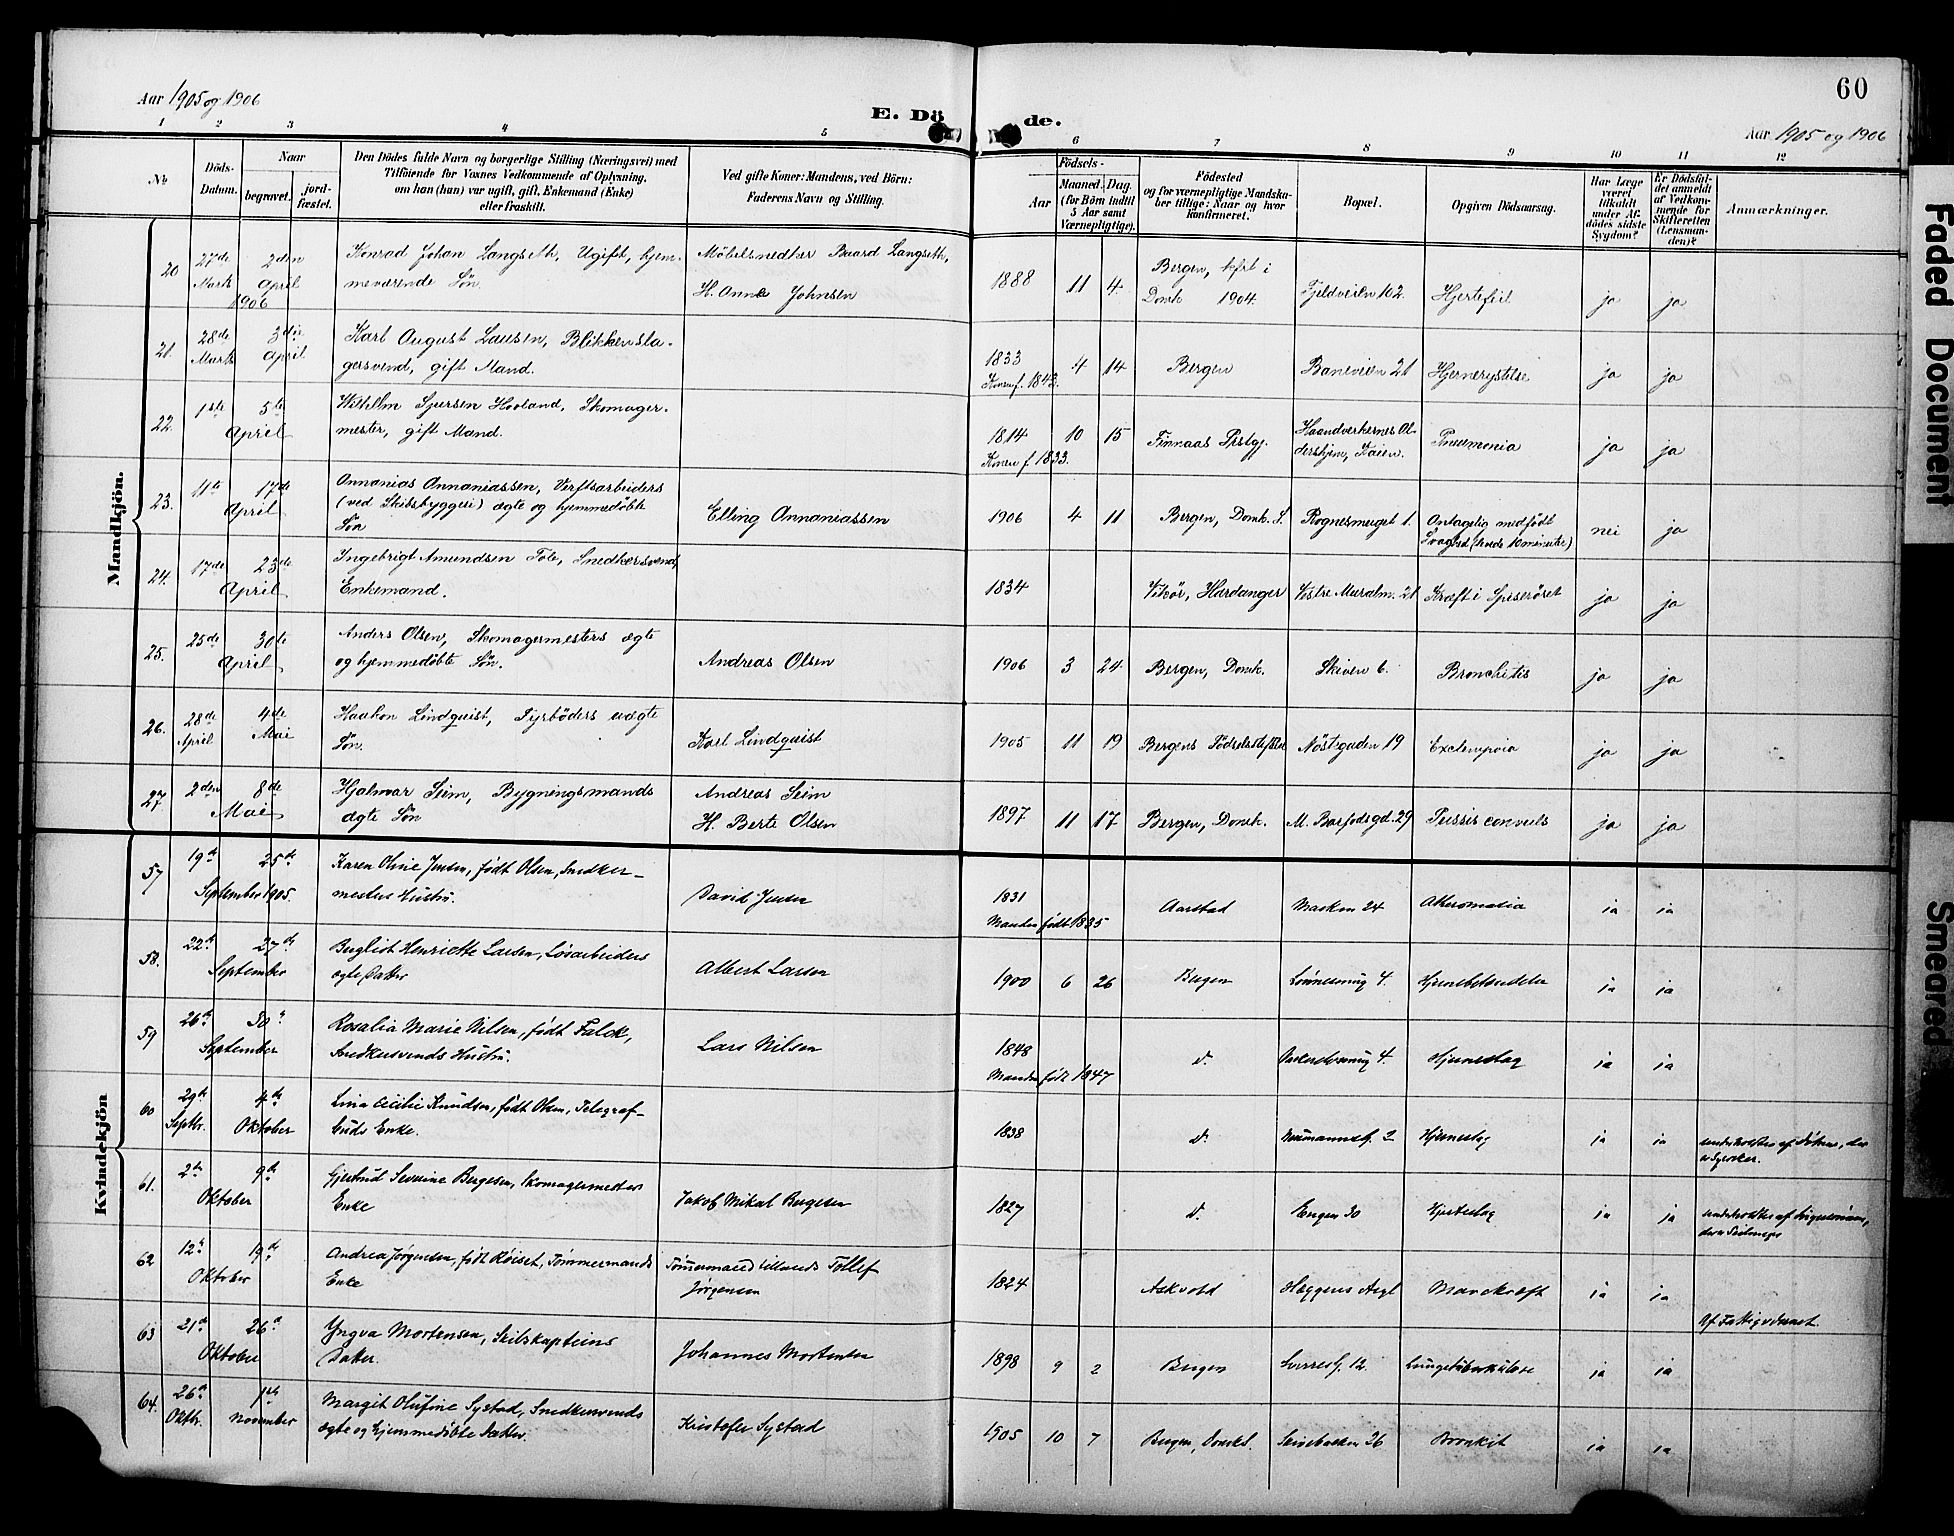 60
Aar 1905 og 1906
E. Döde.
Aar 1905 og 1906
1 2 3 4 5 6 7 8 9 10 11 12
No.
Döds-Datum.
Naar
begravet.
jord-fæstet.
Den Dödes fulde Navn og borgerlige Stilling (Næringsvei) med
Tilföiende for Voxnes Vedkommende af Oplysning,
om han (hun) var ugift, gift, Enkemand (Enke)
eller fraskilt.
Ved gifte Koner: Mandens, ved Börn:
Faderens Navn og Stilling.
Födsels-
Aar
Maaned. Dag.
(for Börn indtil
5 Aar samt
Værnepligtige).
Födested
og for værnepligtige Mandska-
ber tillige: Naar og hvor
konfirmeret.
Bopæl.
Opgiven Dödsaarsag.
Har Læge
været
tilkaldt
under Af-
dödes sidste
Sygdom?
Er Dödsfal-
det anmeldt
af Vedkom-
mende for
Skifteretten
(Lensman-
den)?
Anmærkninger.
Mandkjön.
20 27de Marts 2den April 1906 Konrad Johan Langseth, Ugift, hjem-
meværende Søn. Møbelsnedker Baard Langseth,
H. Anna Johnsen 1888 11 4. Bergen, kfrt i
Domk 1904. Fjeldveien 102. Hjertefeil ja ja
21. 28de Marts 3die April. Karl August Lausen, Blikkensla-
gersvend, gift Mand. 1833
Konen f. 1843. 4 14 Bergen Baneveien 21 Hjernerystelse ja ja
22. 1ste 5te April Wilhelm Sjursen Hovland, Skomager-
mester, gift Mand. 1814
Konen f 1833. 10 15 Finnaas Prstgj. Haandverkernes Al-
dershjem, Kaien. Pneumonia ja ja
23. 11te 17de April Annanias Annaniassen, Verftsarbeiders
(ved Skibsbyggeri) ægte og hjemmedøbte
Søn Elling Annaniassen 1906 4 11 Bergen, Domk. S. Rognesmuget 1. Antagelig medfødt
Svaghed (levede 10 minutter) nei ja
24. 17de 23de April Ingebrigt Amundsen Tole, Snedkersvend,
Enkemand. 1834 Vikør, Hardanger Vestre Muralm. 21 Kræft i Spiserøret ja ja
25. 25de 30te April Anders Olsen, Skomagermesters ægte
og hjemmedøbte Søn. Andreas Olsen 1906 3 24. Bergen, Domk. Skiven 6. Bronchitis ja ja
26. 28de April 4de Mai Haakon Lindquist, Fyrbøders uægte
Søn. Karl Lindquist 1905 11 19 Bergens Fødselsstiftelse Nöstegaden 19 Eclampsia ja ja
27. 2den 8de Mai Hjalmar Seim, Bygningsmands
ægte Søn Andreas Seim
H. Berte Olsen 1897 11 17 Bergen, Domk. M. Barfodsgd. 29 ja ja
Kvindekjön
57 19de 25de September 1905. Karen Oline Jensen, født Olsen, Snedker-
mesters Hustru. David Jensen 1831
Manden født 1835 Aarstad Marken 24 Atheromasia ja ja
58. 22de 27de September Berglioth Henriette Larsen, Løsarbeiders
ægte Datter Albert Larsen 1900 6 26 Bergen 4. Hjernebetændelse ja ja
59 26de 30te September Rosalia Marie Nilsen, født Falck,
Snedkersvends Hustru. Lars Nilsen 1848
Manden født 1847 d. 4. Hjerneslag ja ja
60 29de Septbr. 4de Oktober Lina Cecilie Knudsen, født Olsen, Telegraf-
buds Enke. 1838 d. Neumannsg. 2 Hjerneslag ja ja underholdtes af Søknen, der
er Syerske.
61. 2den 9de Oktober Gjertrud Severine Bergesen, Skomagermesters
Enke Jakob Mikal Bergesen 1827 d. Engen 30 Hjerteslag ja ja
62 12te 19de Oktober Andrea Jørgensen, født Röiset, Tømmermands
Enke Tömmermand tillands Tollef
Jørgensen 1824 Askvold Hæggens Asyl Mavekræft ja ja Af Fattigvæsenet.
63 21de 26de Oktober Yngva Mortensen, Skibskapteins
Datter. Johannes Mortensen 1898 9 2 Bergen Sverresg. 12. Lungetuberkulose ja ja
64. 26de Oktbr. 1ste November Margit Olufine Systad, Snedkersvends
ægte og hjemmedøbte Datter. Kristofer Systad 1905 10 7 Bergen, Domk. Skivebakken 26 Bronkit ja ja
Faded Document
Smeared